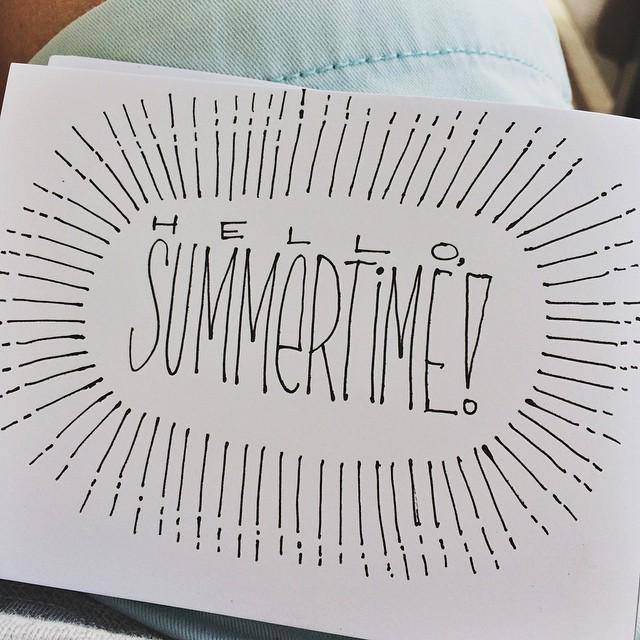 HELLO,
SUMMeRTiME!